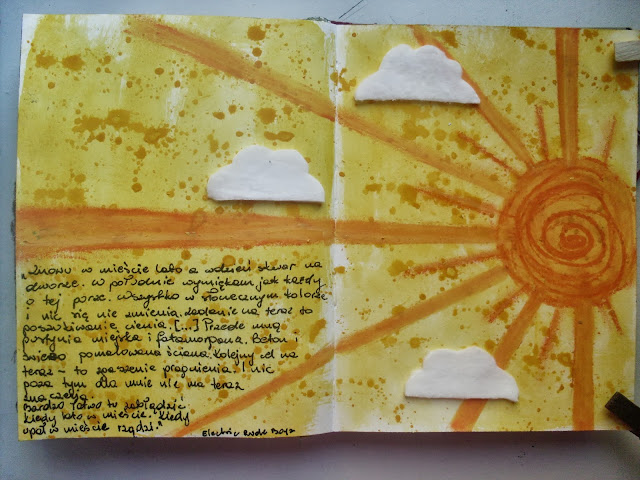 "Znowu w mieście lato a wdzień skwar na
dworze. W południe wymiękam, jak każdy
o tej porze. Wszystko w słonecznym kolorze
i nic się nie zmienia. Zadanie na teraz to
poszukiwanie cienia. [...] Przede mną
pustynia miejska i fatamorgana. Beton i
świeżo pomalowana ściana. Kolejny cel na
teraz - to zgaszenie pragnienia. I nic
poza tym dla mnie nie ma teraz
znaczenia
Bardzo łatwo tu zabłądzić
kiedy lato w mieście. Kiedy
upał w mieście rządzi."
Electric Rude Boyz